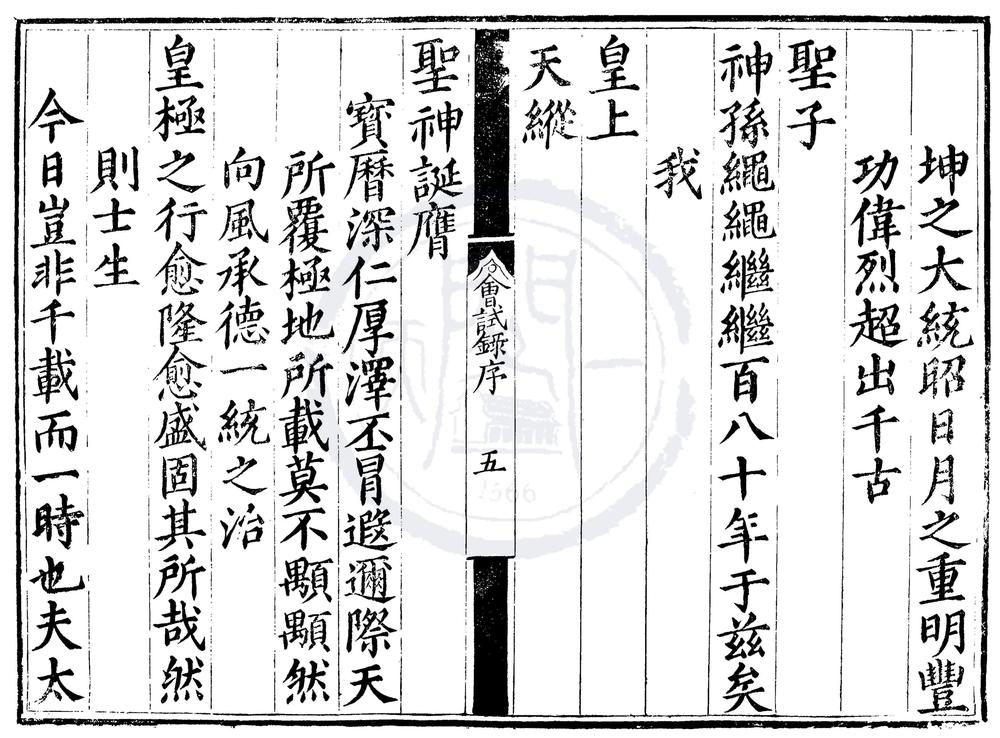 坤之大統昭日月之重明豐
功偉烈超出千古
聖子
神孫繩繩繼繼百八十年于兹矣
我
皇上
天縱
會試錄序
五
聖神誕膺
寳曆深仁厚澤丕冒遐邇際天
所覆極地所載莫不顒顒然
向風承德一統之治
皇極之行愈隆愈盛固其所哉然
則士生
今日豈非千載而一時也夫太
1566